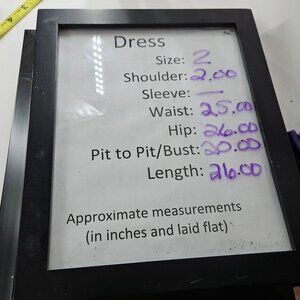 Dress
Size: 2
Shoulder: 2.00
Sleeve: —
Waist: 25.00
Hip: 26.00
Pit to Pit/Bust: 20.00
Length: 26.00
Approximate measurements
(in inches and laid flat)